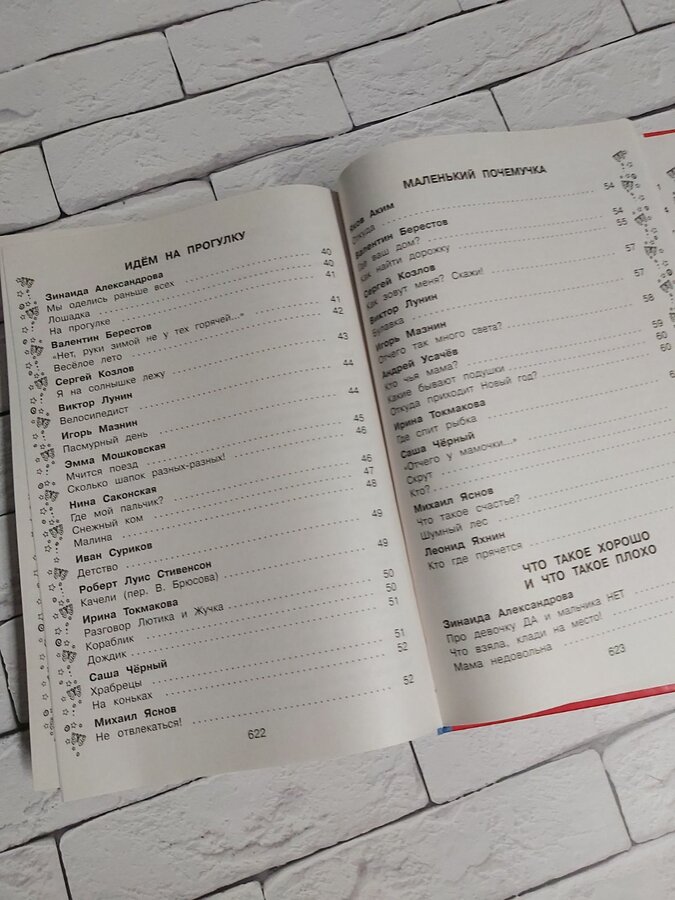 ИДЁМ НА ПРОГУЛКУ
Зинаида Александрова
Мы оделись раньше всех 40
Лошадка 40
На прогулке 41
Валентин Берестов
«Нет, руки зимой не у тех горячей...» 41
Весёлое лето 42
Сергей Козлов
Я на солнышке лежу 43
Виктор Лунин
Велосипедист 44
Игорь Мазнин
Пасмурный день 44
Эмма Мошковская
Мчится поезд 45
Сколько шапок разных-разных! 46
Нина Саконская
Где мой пальчик? 46
Снежный ком 47
Малина 48
Иван Суриков
Детство 49
Роберт Луис Стивенсон
Качели (пер. В. Брюсова) 49
Ирина Токмакова
Разговор Лютика и Жучка 50
Кораблик 50
Дождик 51
Саша Чёрный
Храбрецы 51
На коньках 52
Михаил Яснов
Не отвлекаться! 52
622
МАЛЕНЬКИЙ ПОЧЕМУЧКА
Яков Аким
Откуда 54
Валентин Берестов
Где ваш дом? 54
Как найти дорожку 55
Сергей Козлов
Как зовут меня? Скажи! 57
Виктор Лунин
Булавка 57
Игорь Мазнин
Отчего так много света? 58
Андрей Усачёв
Кто чья мама? 59
Какие бывают подушки 60
Откуда приходит Новый год? 60
Ирина Токмакова
Где спит рыбка
Саша Чёрный
«Отчего у мамочки...»
Скрут
Кто?
Михаил Яснов
Что такое счастье?
Шумный лес
Леонид Яхнин
Кто где прячется
ЧТО ТАКОЕ ХОРОШО
И ЧТО ТАКОЕ ПЛОХО
Зинаида Александрова
Про девочку ДА и мальчика НЕТ
Что взяла, клади на место!
Мама недовольна
623